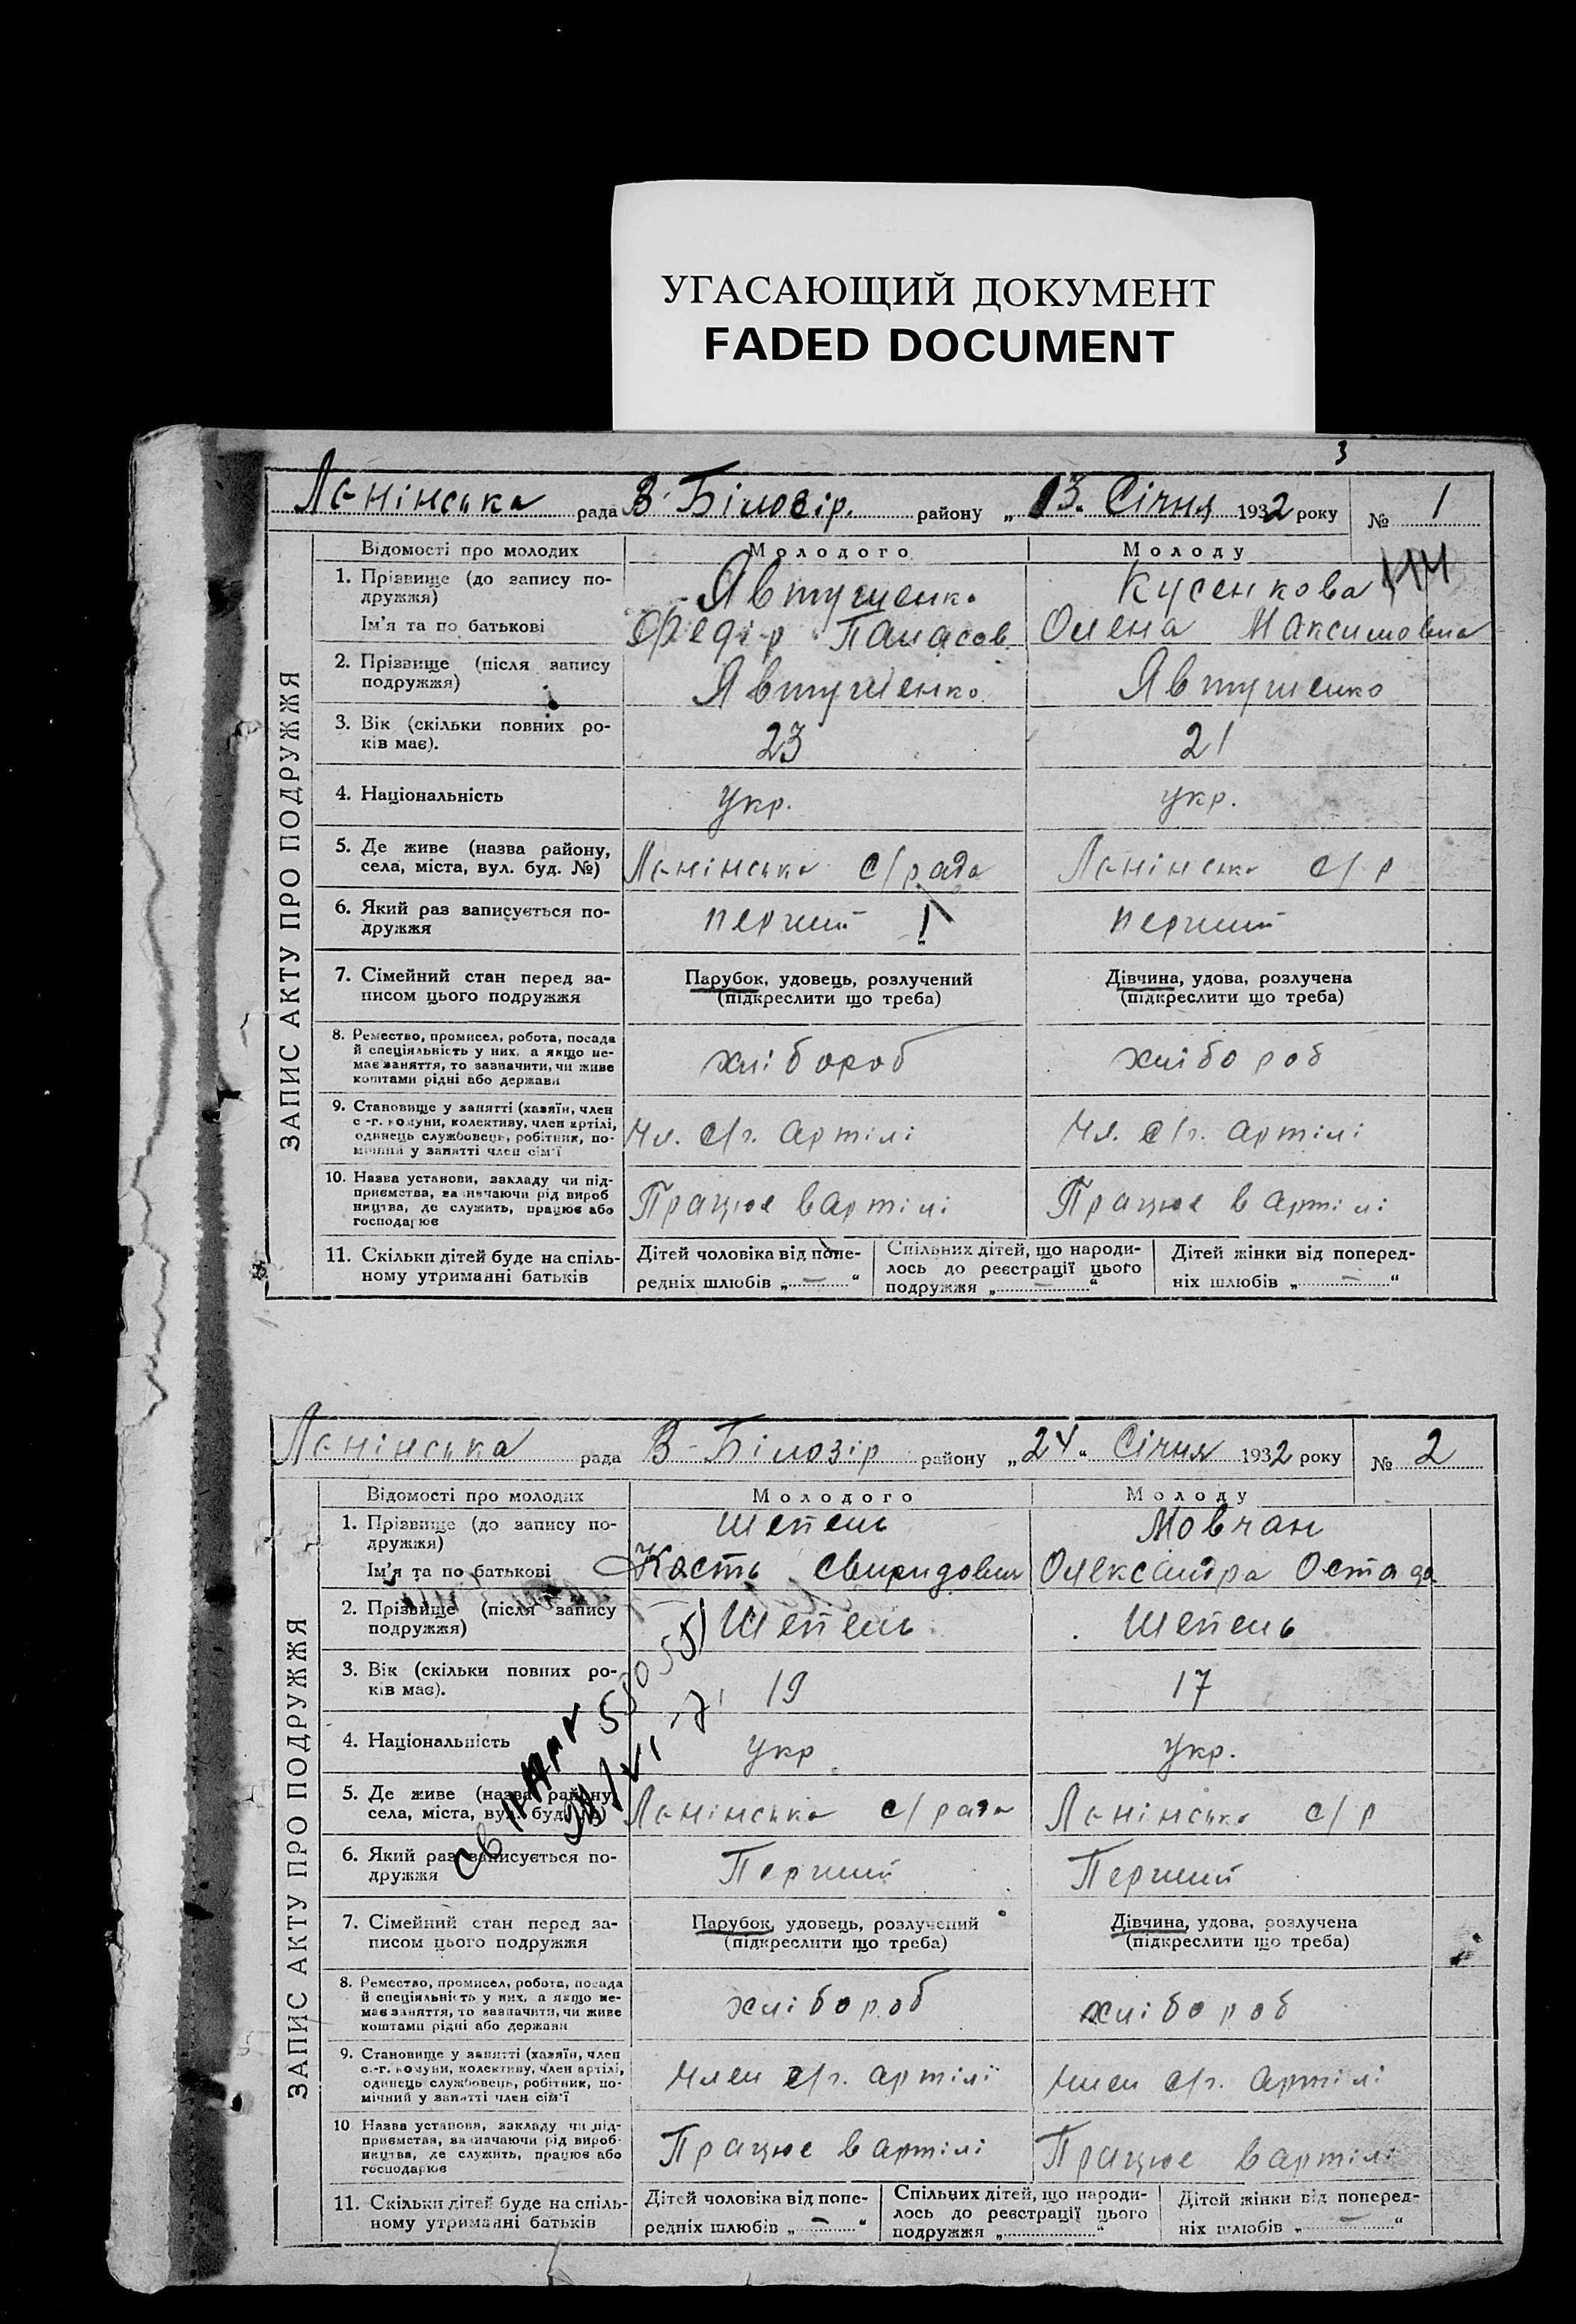 УГАСАЮЩИЙ ДОКУМЕНТ
FADED DOCUMENT
3
Ленінська рада В-Білозір. району „13." Січня 1932 року № 1
ЗАПИС АКТУ ПРО ПОДРУЖЖЯ
Відомості про молодих Молодого Молоду
1. Прізвище (до запису по-
дружжя) Явтушенко Кусенкова
Ім'я та по батькові Федір Панасов. Олена Максимовна
2. Прізвище (після запису
подружжя) Явтушенко Явтушенко
3. Вік (скільки повних ро-
ків має). 23 21
4. Національність укр. укр.
5. Де живе (назва району,
села, міста, вул. буд. №) Ленінська с/рада Ленінська с/р
6. Який раз записується по-
дружжя перший перший
7. Сімейний стан перед за-
писом цього подружжя
Парубок, удовець, розлучений
(підкреслити що треба)
Дівчина, удова, розлучена
(підкреслити що треба)
8. Ремество, промисел, робота, посада
й спеціяльність у них, а якщо не-
має заняття, то зазначити, чи живе
коштами рідні або держави
хлібороб хлібороб
9. Становище у занятті (хазяїн, член
с.-г. комуни, колективу, член артілі,
одинець службовець, робітник, по-
мічний у занятті член сім'ї
Чл. с/г. артілі Чл. с/г. артілі
10. Назва установи, закладу чи під-
приємства, зазначаючи рід вироб
ництва, де служить, працює або
господарює
Працює в артілі Працює в артілі
11. Скільки дітей буде на спіль-
ному утриманні батьків
Дітей чоловіка від попе-
редніх шлюбів „ — "
Спільних дітей, що народи-
лось до реєстрації цього
подружжя „ — "
Дітей жінки від поперед-
ніх шлюбів „ — "
Ленінська рада В-Білозір району „24" Січня 1932 року № 2
ЗАПИС АКТУ ПРО ПОДРУЖЖЯ
Відомості про молодих Молодого Молоду
1. Прізвище (до запису по-
дружжя) Шепель Мовчан
Ім'я та по батькові Кость Свиридович Олександра Остапо
2. Прізвище (після запису
подружжя) Шепель Шепель
3. Вік (скільки повних ро-
ків має). 19 17
4. Національність укр укр.
5. Де живе (назва району,
села, міста, вул. буд. №) Ленінська с/рада Ленінська с/р
6. Який раз записується по-
дружжя Перший Перший
7. Сімейний стан перед за-
писом цього подружжя
Парубок, удовець, розлучений
(підкреслити що треба)
Дівчина, удова, розлучена
(підкреслити що треба)
8. Ремество, промисел, робота, посада
й спеціяльність у них, а якщо не-
має заняття, то зазначити, чи живе
коштами рідні або держави
хлібороб хлібороб
9. Становище у занятті (хазяїн, член
с.-г. комуни, колективу, член артілі,
одинець службовець, робітник, по-
мічний у занятті член сім'ї
Член с/г. артілі Член с/г. артілі
10 Назва установи, закладу чи під-
приємства, зазначаючи рід вироб-
ництва, де служить, працює або
господарює
Працює в артілі Працює в артілі
11. Скільки дітей буде на спіль-
ному утриманні батьків
Дітей чоловіка від попе-
редніх шлюбів „ — "
Спільних дітей, що народи-
лось до реєстрації цього
подружжя „ "
Дітей жінки від поперед-
ніх шлюбів „ — "